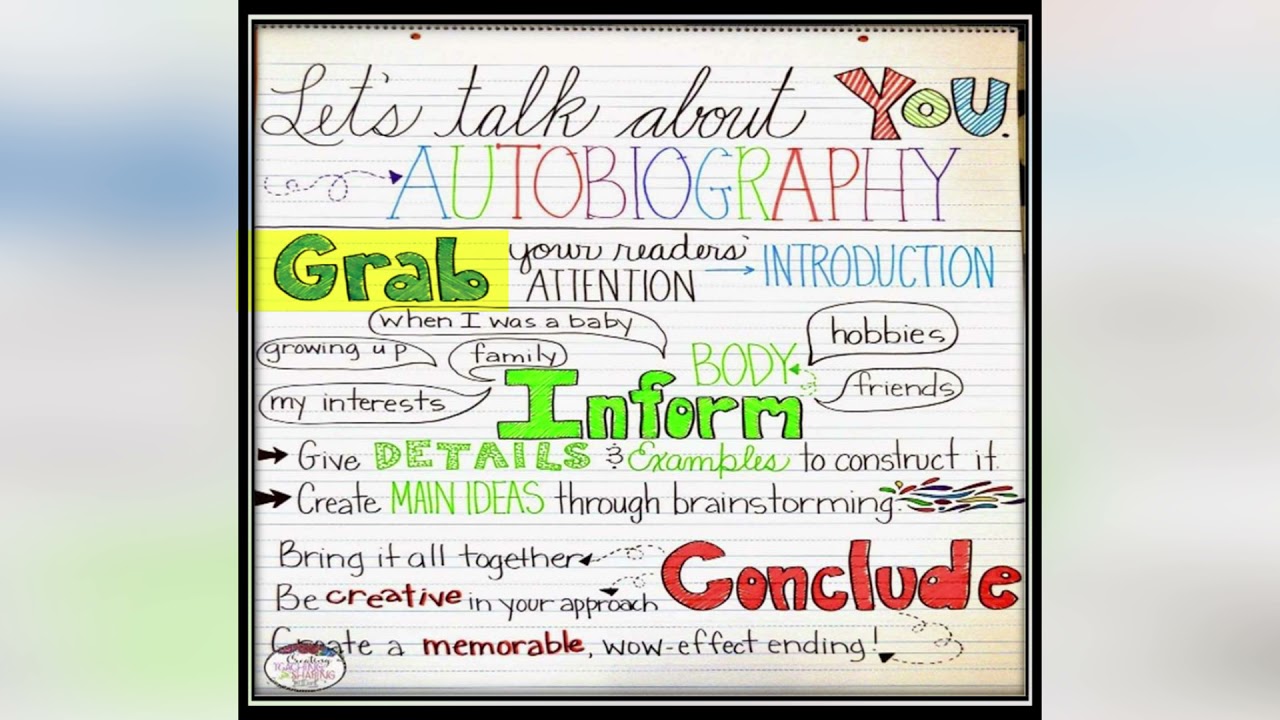 Let's talk about YOU.
AUTOBIOGRAPHY
Grab your readers' ATTENTION INTRODUCTION
when I was a baby
growing up
family
my interests
hobbies
friends
BODY
Inform
Give DETAILS & Examples to construct it.
Create MAIN IDEAS through brainstorming.
Conclude
Bring it all together
Be creative in your approach
Create a memorable, wow-effect ending!
Creating
TEACHING
SHARING